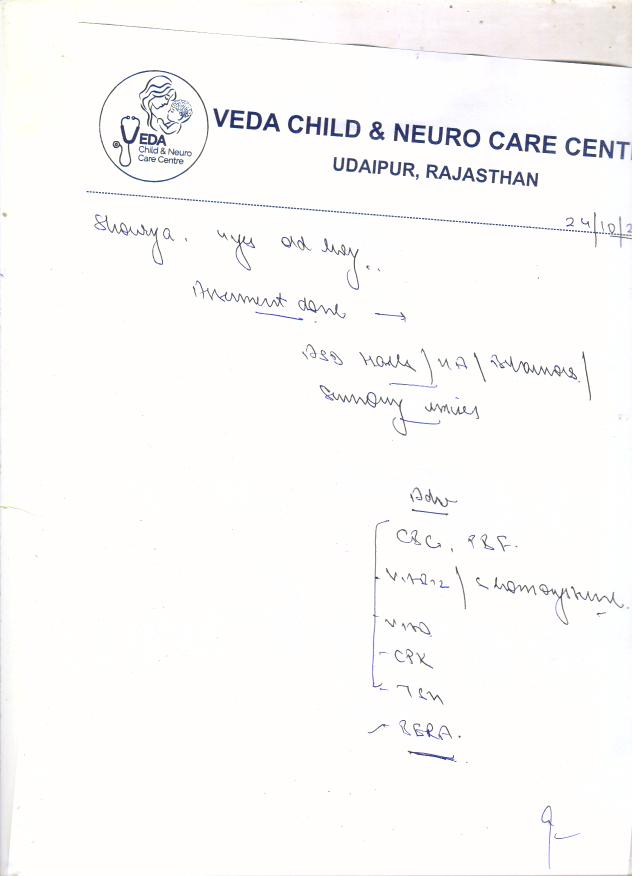 VEDA
Child & Neuro
Care Centre
VEDA CHILD & NEURO CARE CENT
UDAIPUR, RAJASTHAN
24/10/2
Shourya. 4 yrs old boy..
Assessment done →
ASD traits / HA / Behaviors /
Sensory issues
Adv
CBC, PBF.
- Vit B12 / S. homocysteine.
- Vit D
- CPK
- TSH
BERA.